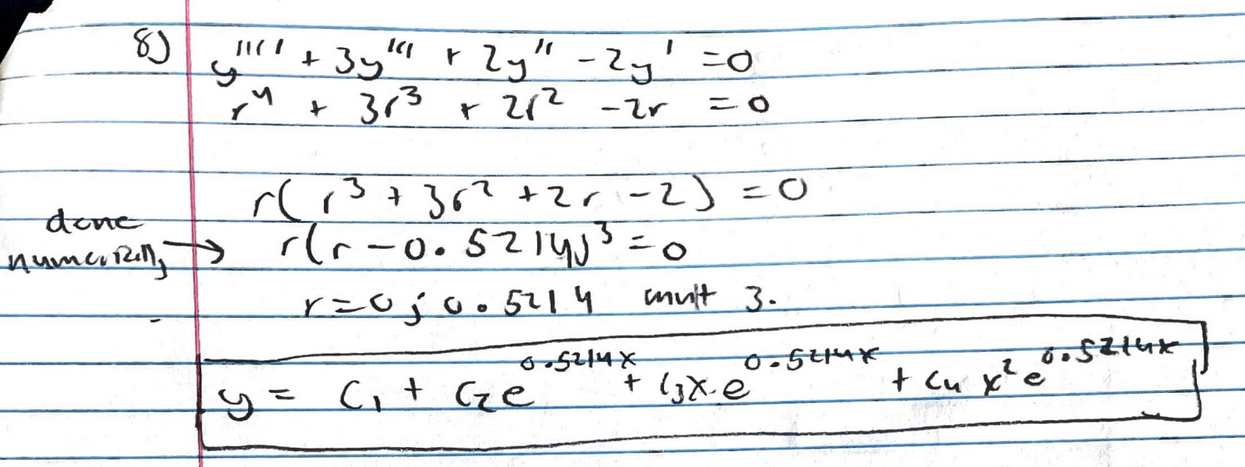 8) y'''' + 3y''' + 2y'' - 2y' = 0
r^4 + 3r^3 + 2r^2 - 2r = 0
r(r^3 + 3r^2 + 2r - 2) = 0
done numerically → r(r - 0.5214)^3 = 0
r = 0; 0.5214 mult 3.
y = C_1 + C_2 e^{0.5214x} + C_3 x e^{0.5214x} + C_4 x^2 e^{0.5214x}